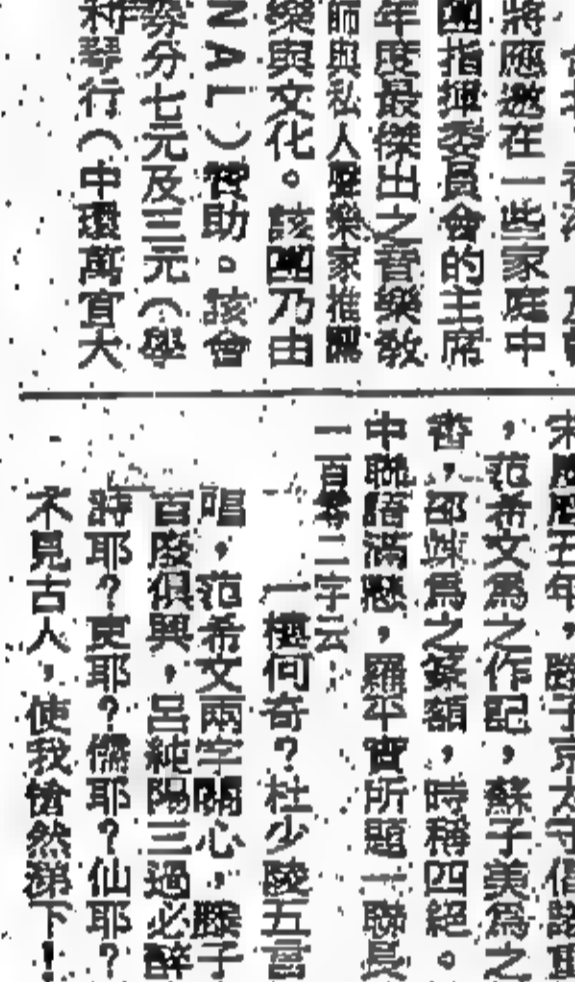 將應邀在一些家庭中
團指揮委員會的主席
年度最傑出之音樂教
師與私人聲樂家推薦
樂與文化。該團乃由
NAL）贊助。該會
券分七元及三元（學
琴行（中環萬宜大
慶曆五年，滕子京太守
，范希文為之作記，蘇子美為之
書，邵竦為之篆額，時稱四絕。
中聯語滿懸，羅平賓所題一聯長
一百零二字云：
一樓何奇？杜少陵五言
唱，范希文兩字關心，滕子
百廢俱興，呂純陽三過必醉
詩耶？吏耶？儒耶？仙耶？
不見古人，使我愴然涕下！